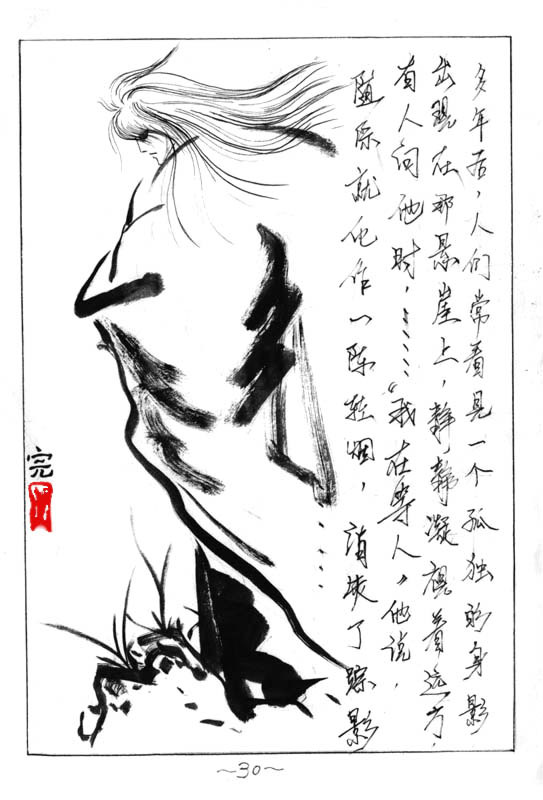 多年后，人们常看见一个孤独的身影
出现在那悬崖上，静静凝视着远方，
有人问他时，……“我在等人”他说，
随际就化作一阵轻烟，消失了踪影……
完
~30~